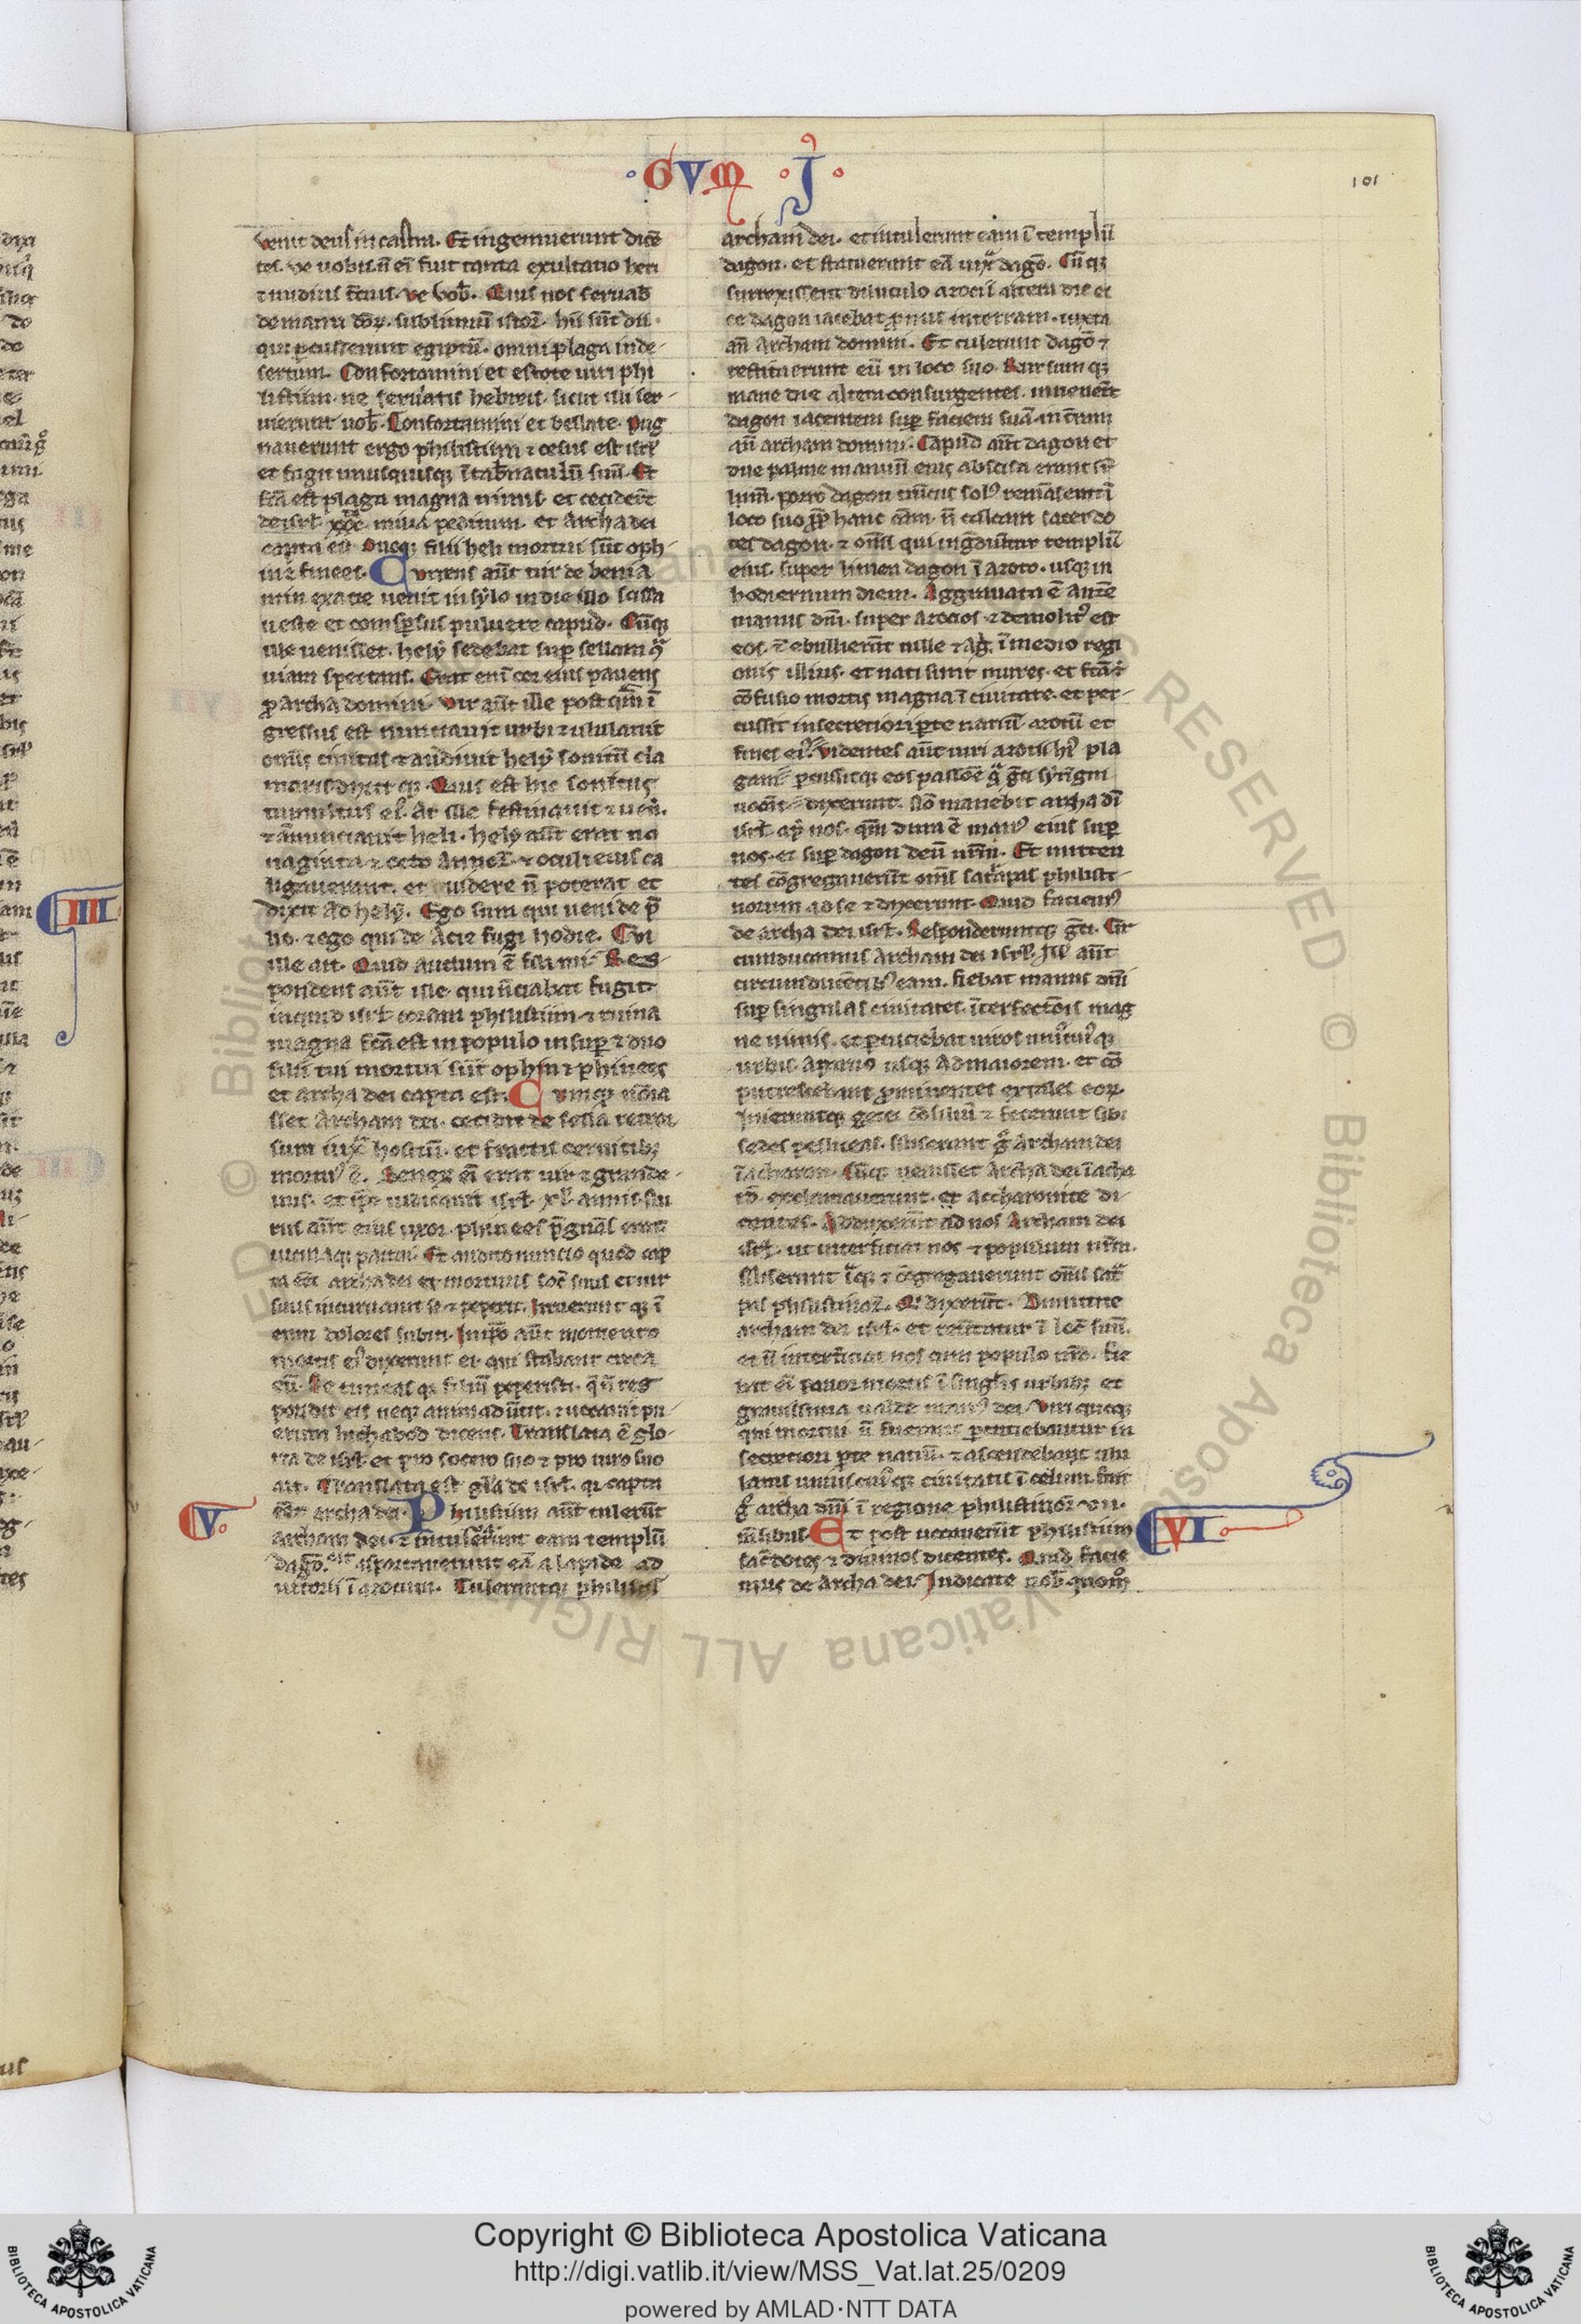 GVM · J ·
101
venit deus in castra. Et ingemuerunt dicē
tes. ve uobis. n̄ eī fuit tanta exultatio heri
⁊ nudius t̄cius. ve vob̄. Quis nos seruab̄
de manu dōꝝ. sublimiū istoꝝ. hii sūt dii.
qui percusserunt egiptū. omni plaga in de-
sertum. Confortamini et estote uiri phi
listiim. ne seruiatis hebreis. sicut illi ser-
uierunt uob̄. Confortamini et bellate. Pug
nauerunt ergo philistiim ⁊ cesus est isrł
et fugit unusquisqꝫ ī tab̄naculū suū. Et
fc̄a est plaga magna nimis. et cecider̄t
de isrł. xxx. milia peditum. et archa dei
capta est. Duoqꝫ filii heli mortui sūt oph-
ni ⁊ finees. Currens aūt uir de benia
min ex acie uenit in sylo in die illo scissa
ueste et conspersus puluere capud. Cūqꝫ
ille uenisset. hely sedebat sup sellam ꝯ̄
uiam spectans. Erat enī cor eius pauens
pro archa domini. Vir aūt ille post qm̄ ī
gressus est nuntiauit urbi ⁊ ululauit
omīs ciuitas ⁊ audiuit hely sonitū cla
moris dixit qꝫ. Quis est hic sonitus
tumultus ei. At ille festinauit ⁊ uen̄.
⁊ ānunciauit heli. hely aūt erat no
naginta ⁊ octo annoꝝ. ⁊ oculi eius ca
ligauerant. et uidere n̄ poterat et
dixit ad hely. Ego sum qui ueni de p̄
lio. ⁊ ego qui de acie fugi hodie. Cui
ille ait. Quid actum ē fili mi. Res-
pondens aūt ille qui nūciabat fugit
inquid isrł coram philistiim. ⁊ ruina
magna fc̄a est in populo insup ⁊ duo
filii tui mortui sūt ophni ⁊ phinees
et archa dei capta est. Cumqꝫ nōia
sset archam dei. cecidit de sella retror
sum iux̄ hostiū. et fractis ceruicibꝫ
mortuꝰ ē. Senex eī erat uir ⁊ grande-
uus. et ip̄e iudicauit isrł. xl. annis. Nu
rus aūt eius uxor phinees p̄gnās erat
uicinaqꝫ partui. Et audito nuncio quod cap
ta ēēt archa dei et mortuus soc̄ suus et uir
suus incuruauit se ⁊ peperit. Irruerunt qꝫ ī
eam dolores subiti. In ip̄o aūt momento
mortis eiꝰ dixerunt ei. qui stabant circa
eū. Ne timeas qꝫ filiū peperisti. q̄ n̄ res
pondit eis neqꝫ animaduertit. ⁊ uocauit pu-
erum hichabod dicens. Translata ē glo-
ria de isrł et pro socero suo ⁊ pro uiro suo
ait. Translata est glīa de isrł. qꝫ capta
ēēt archa dei. Philistiim aūt tulerūt
archam dei. ⁊ intulerunt eam templū
dagō. asportauerunt eā a lapide ad
iutorii ī azotum. Tuleruntqꝫ philistei
V.
archam dei. et intulerunt eam ī templū
dagon. et statuerunt eā iux̄ dagō. Cūqꝫ
surrexissent diluculo azocii altera die et
ce dagon iacebat pronus in terram. iuxta
an̄ archam domini. Et tulerunt dagō ⁊
restituerunt eū in loco suo. Rursum qꝫ
mane die altera consurgentes. inuener̄t
dagon iacentem sup faciem suā in t̄ram
an̄ archam domini. Capud aūt dagon et
due palme manuū eius abscisa erant sr̄
lum̄. porro dagon trūcus solꝰ remāserat ī
loco suo. ꝓp̄ hanc cām. n̄ calcant sacerdo
tes dagon. ⁊ om̄s qui ingrediūtur templū
eius. super limen dagon ī azoto. usqꝫ in
hodiernum diem. Aggrauata ē autē
manus dn̄i. super azocios. ⁊ demolitꝰ est
eos. ⁊ ebullierūt uille ⁊ agri ī medio regi
onis illius. et nati sunt mures. et fc̄ā ē
cōfusio mortis magna ī ciuitate. et per-
cussit in secretiori parte natiū. azotū et
fines eiꝰ. Videntes aūt uiri azotii hꝰ pla
gam
isrł. apꝰ nos. qm̄ dura ē manꝰ eius sup
nos. et sup dagon deū nr̄m. Et mitten
tes cōgregauerūt om̄s satrapas philisti-
norum ad se ⁊ dixerunt. Quid faciemꝰ
de archa dei isrł. Responderuntqꝫ get̄i. Cir
cumducamus archam dei isrł.
circumducētibꝰ eam. fiebat manus dn̄i
sup singulas ciuitates. īterfectōis mag
ne nimis. et percuciebat uiros uniꝰcuiꝰqꝫ
urbis. a paruo usqꝫ ad maiorem. et cō
putrescebant prominentes extales eoꝝ.
Inieruntqꝫ getei cōsiliū ⁊ fecerunt sibi
sedes pelliceas. Miserunt g̊ archam dei
ī acharon. Cūqꝫ uenisset archa dei ī acha
rō. exclamauerunt. et accharonite di-
centes. Adduxerūt ad nos Archam dei
isrł. ut interficiat nos ⁊ populum nr̄m.
Miserunt itaqꝫ ⁊ cōgregauerunt om̄s satra
pas philistinoꝝ. Qꝫ dixerūt. Dimittite
archam dei isrł. et reūtatur ī locū suū.
et n̄ interficiat nos cum populo nr̄o. fie
bat eī pauor mortis ī singulis urbibꝫ et
grauissima ualde manꝰ dei. Viri quoqꝫ
qui mortui n̄ fuerant percuciebantur in
secretiori parte natiū. ⁊ ascendebant ulu
latus uniuscuiꝰqꝫ ciuitatis ī celum. fuit
g̊ archa dn̄i ī regione philistinoꝝ. vii.
mēsibus. Et post uocauerūt philistiim
sac̄dotes ⁊ diuinos dicentes. Quid facie
mus de archa dei. Indicate nob̄. quom̊
VI
Copyright © Biblioteca Apostolica Vaticana
http://digi.vatlib.it/view/MSS_Vat.lat.25/0209
powered by AMLAD·NTT DATA
BIBLIOTECA APOSTOLICA VATICANA
BIBLIOTECA APOSTOLICA VATICANA